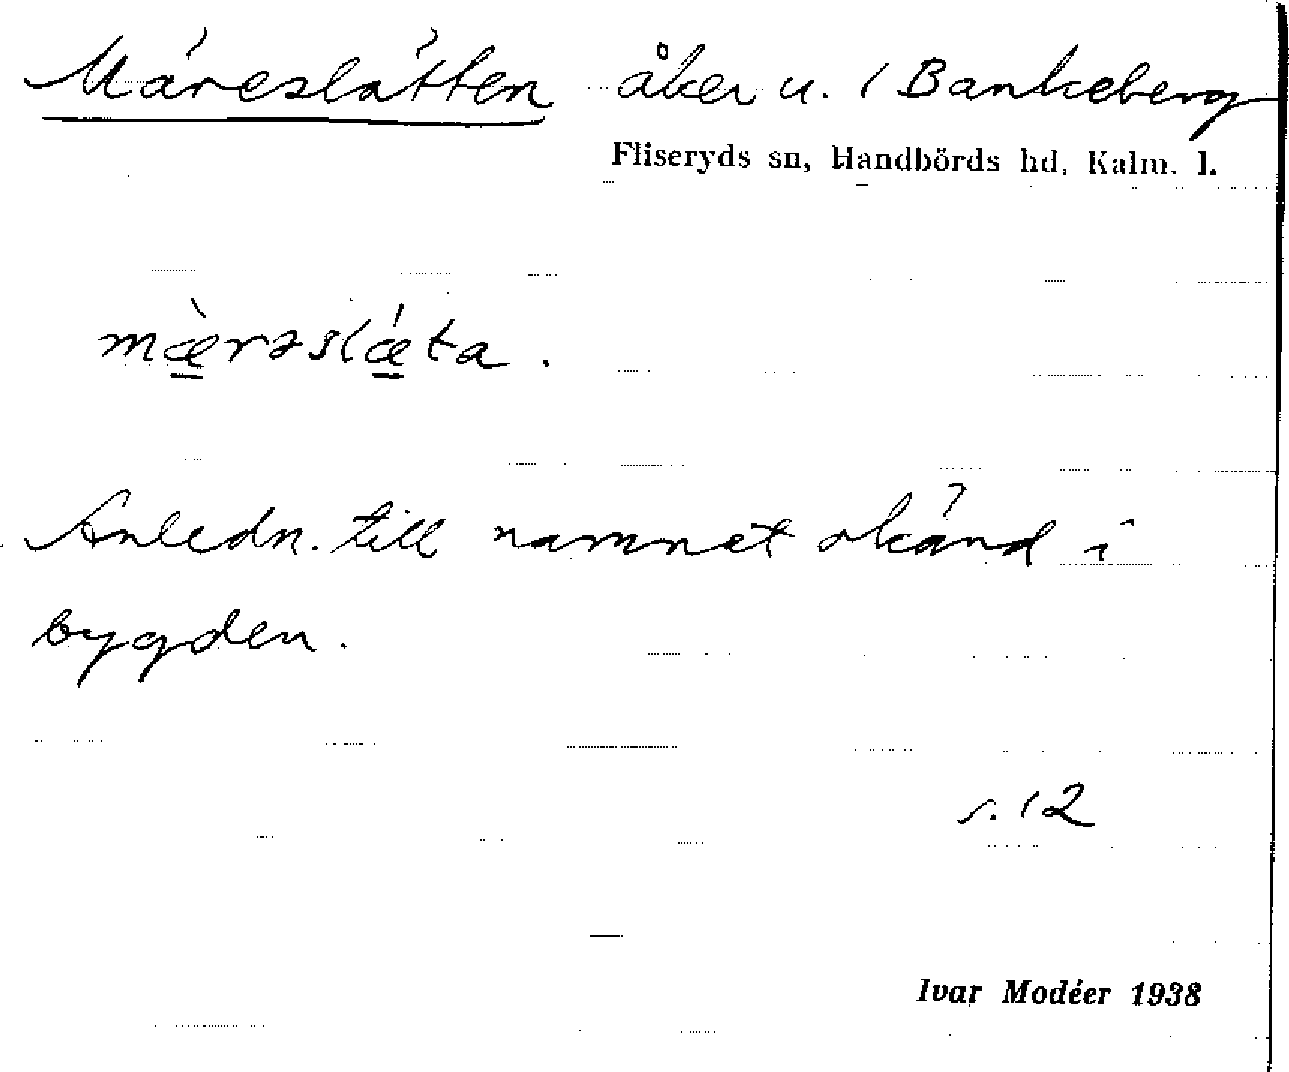 Märeslätten åker u. 1 Bankeberg
Fliseryds sn, Handbörds hd, Kalm. l.
mæ̀rəslǽta.
Anledn. till namnet okänd i
bygden.
s. 12
Ivar Modéer 1938